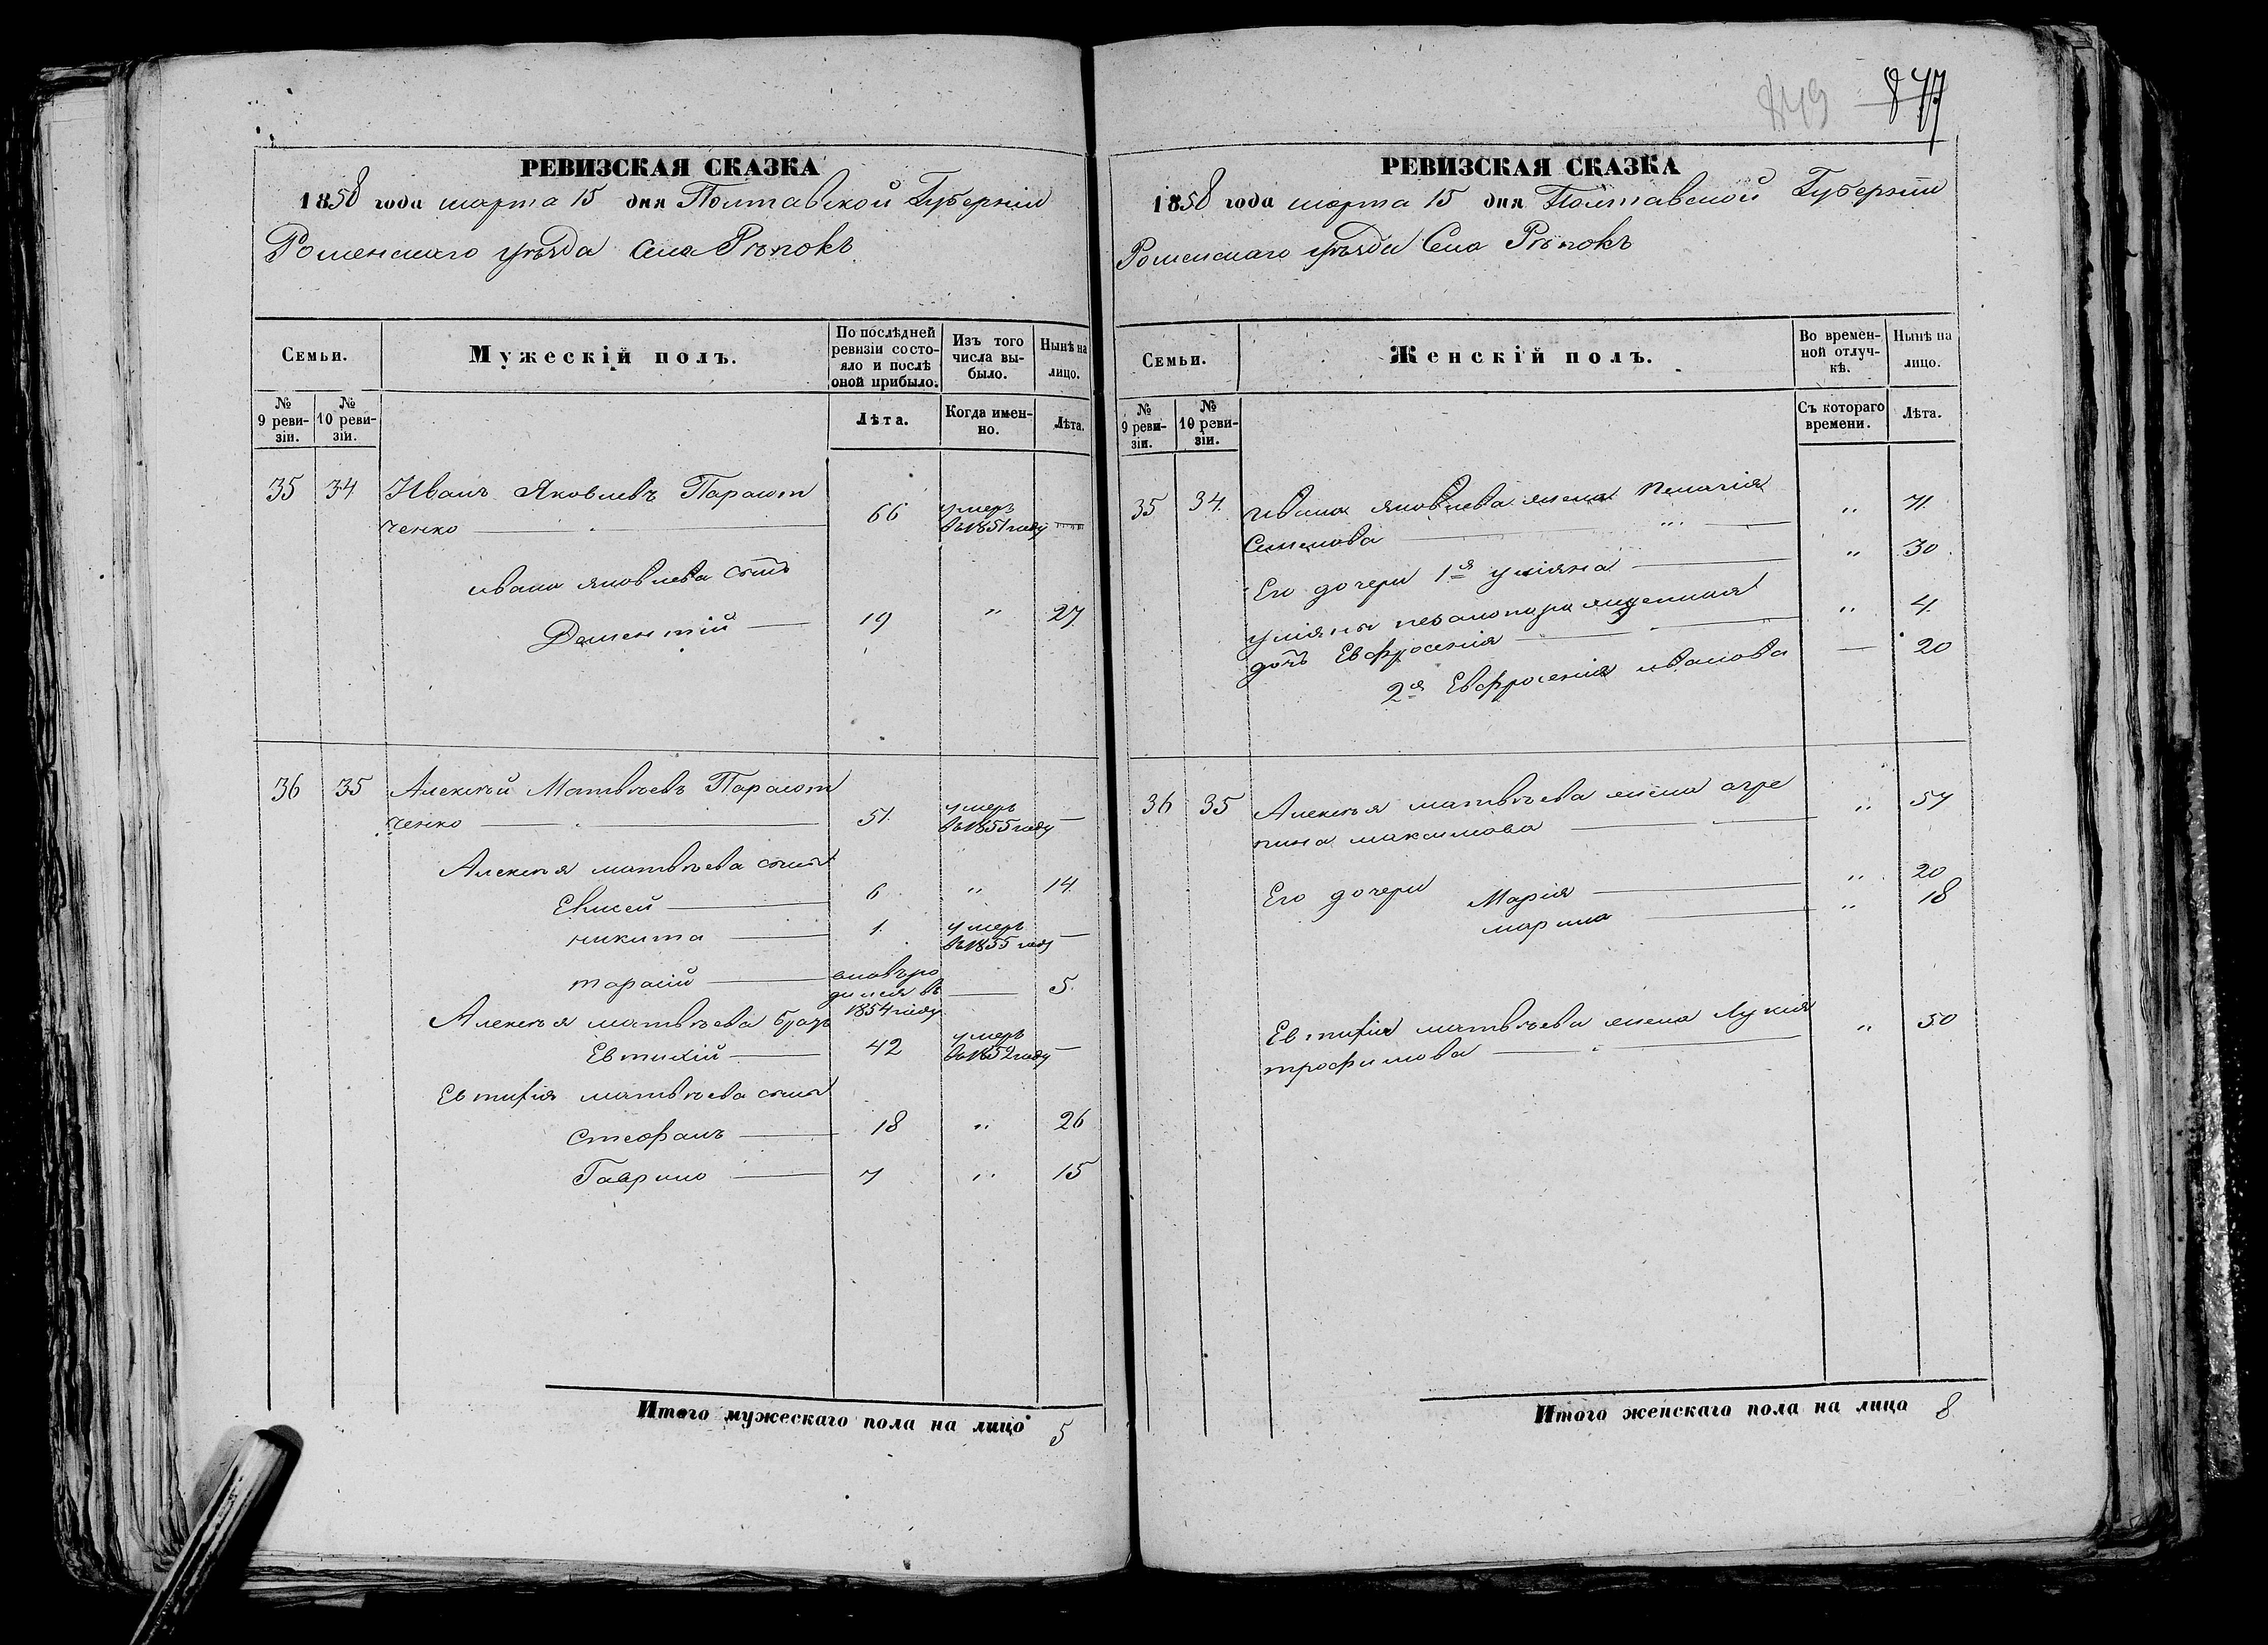 849 877
РЕВИЗСКАЯ СКАЗКА
1858 года марта 15 дня Полтавской Губерніи
Роменскаго уѣзда Села Рѣпокъ
Семьи.
Мужескій полъ.
По послѣдней ревизіи состояло и послѣ оной прибыло.
Изъ того числа выбыло.
Нынѣ на лицо.
№ 9 ревизіи.
№ 10 ревизіи.
Лѣта.
Когда именно.
Лѣта.
35 34 Иванъ Яковлевъ Параст
ченко 66 умеръ
въ 1851 году
Ивана Яковлева сынъ
Дементій 19 " 27
36 35 Алексѣй Матвѣевъ Параст
ченко 51. умеръ
въ 1855 году
Алексѣя матвѣева сыны
Елисей 6 " 14
никита 1. умеръ
въ 1855 году
тарасій вновь ро
дился въ 5.
1854 году
Алексѣя матвѣева братъ
Евтихій 42 умеръ
въ 1852 году
Евтихія матвѣева сыны
Стефанъ 18 " 26
Гаврило 7 " 15
Итого мужескаго пола на лицо 5
РЕВИЗСКАЯ СКАЗКА
1858 года марта 15 дня Полтавской Губерніи
Роменскаго уѣзда Села Рѣпокъ
Семьи.
Женскій полъ.
Во временной отлучкѣ.
Нынѣ на лицо.
№ 9 ревизіи.
№ 10 ревизіи.
Съ котораго времени.
Лѣта.
35 34. Ивана яковлева жена Пелагія
Семенова " 71.
Его дочери 1я уліяна " 30.
уліяны незаконорожденная
дочь Евфросенія " 4.
2я Евфросенія иванова 20
36 35 Алексѣя матвѣева жена агре
пина максимова " 57
Его дочери Марія " 20
марина " 18
Евтихія матвѣева жена Лукія
трофимова " 50
Итого женскаго пола на лицо 8